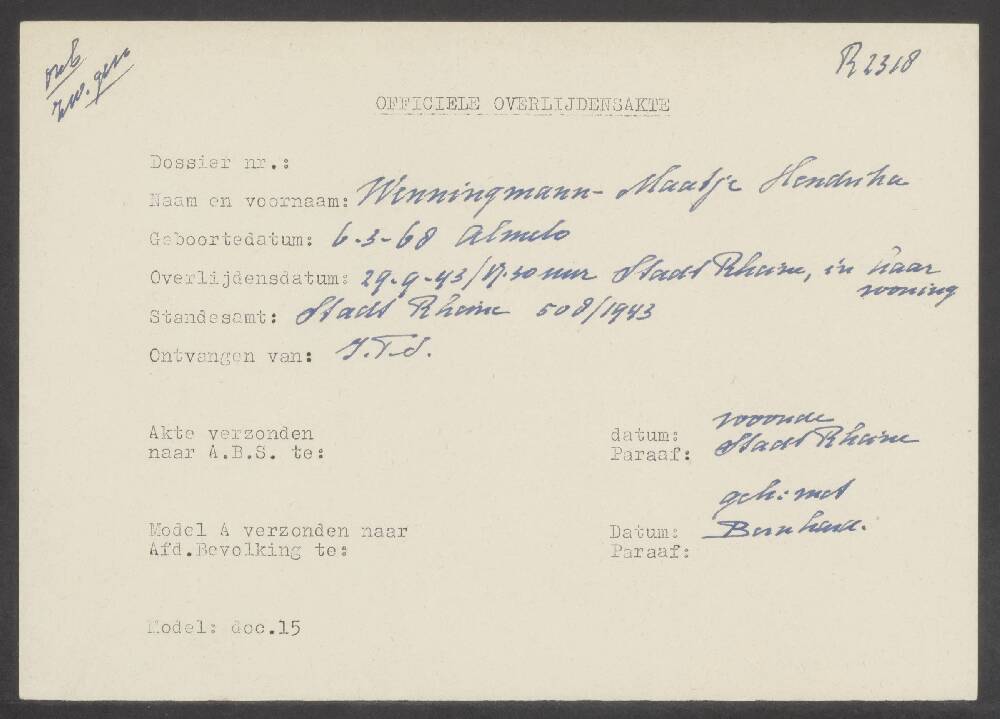 R 2318
zw. gen
OFFICIELE OVERLIJDENSAKTE
Dossier nr.:
Naam en voornaam: Wenningmann - Maatje Hendrika
Geboortedatum: 6-3-68 Almelo
Overlijdensdatum: 29-9-43/17.30 uur Stadt Rheine, in haar woning
Standesamt: Stadt Rheine 508/1943
Ontvangen van: I.T.S.
Akte verzonden
naar A.B.S. te:
datum: woonde
Paraaf: Stadt Rheine
geh: met
Model A verzonden naar
Afd.Bevolking te:
Datum: Bernhard.
Paraaf:
Model: doc.15